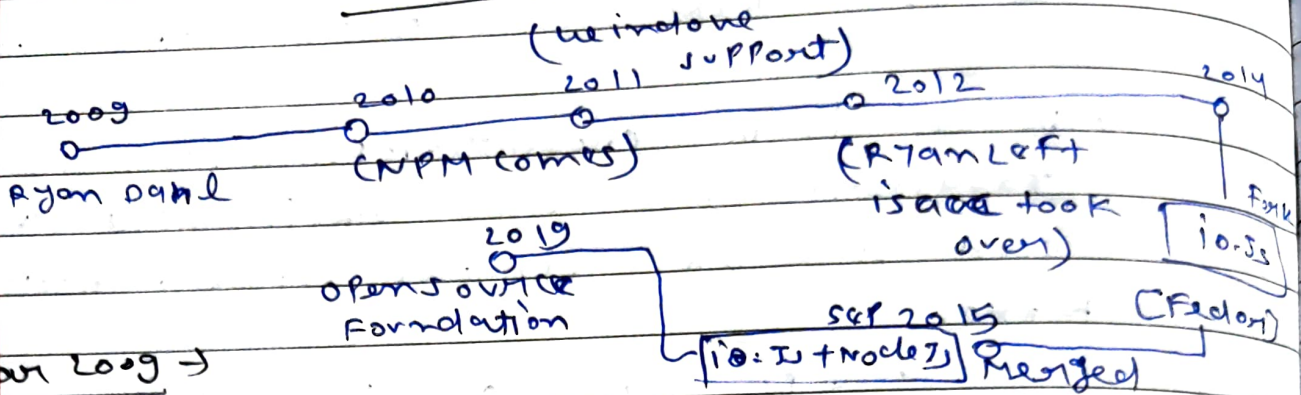 (windows
support)
2009
2010
2011
2012
2014
Ryan Dahl
(NPM comes)
(Ryan Left
isaac took
over)
Fork
io.Js
(Fedor)
2019
opensource
Foundation
Sep 2015
io.Js + NodeJs
Merged
2009 →